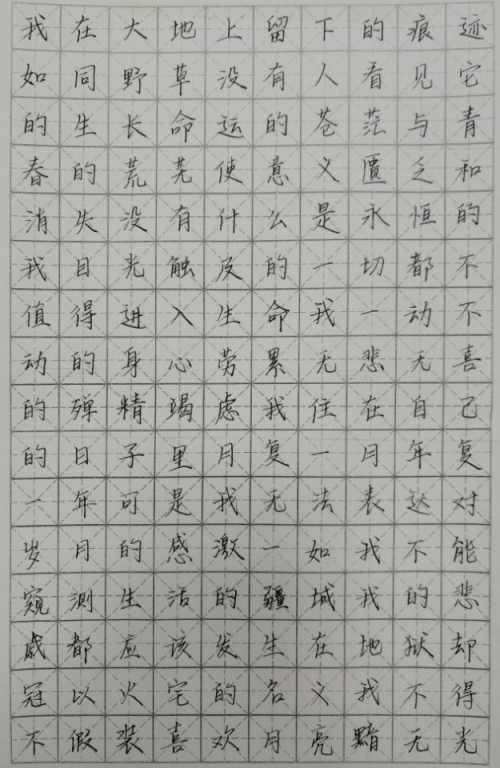 我在大地上留下的痕迹
如同野草没有人看见它
的生长命运的苍茫与青
春的荒芜使意义匮乏和
消失没有什么是永恒的
我目光触及的一切都不
值得进入生命我一动不
动的身心劳累无悲无喜
的殚精竭虑我住在自己
的日子里月复一月年复
一年可是我无法表达对
岁月的感激一如我不能
窥测生活的疆域我的悲
戚都应该发生在地狱却
冠以火宅的名义我不得
不假装喜欢月亮黯无光